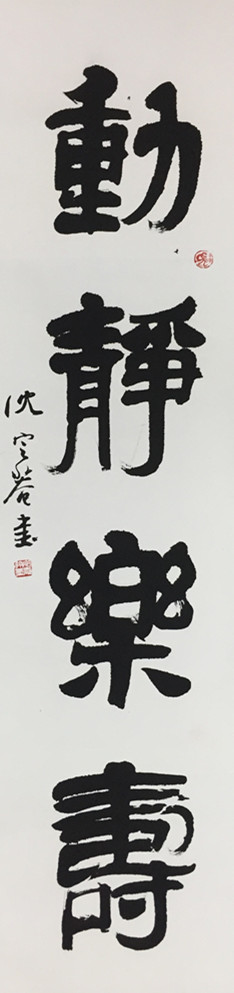 動靜樂壽
沈定菴書